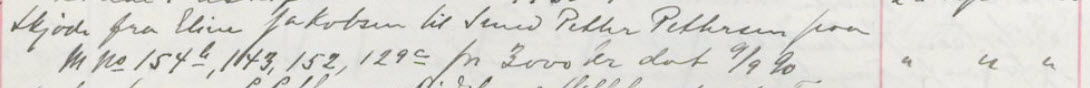 Skjøde fra Eline Jakobsen til Smed Petter Pettersen paa
M No 154h, 143, 152, 129c for 3000 kr dat 9/9 90 " " "